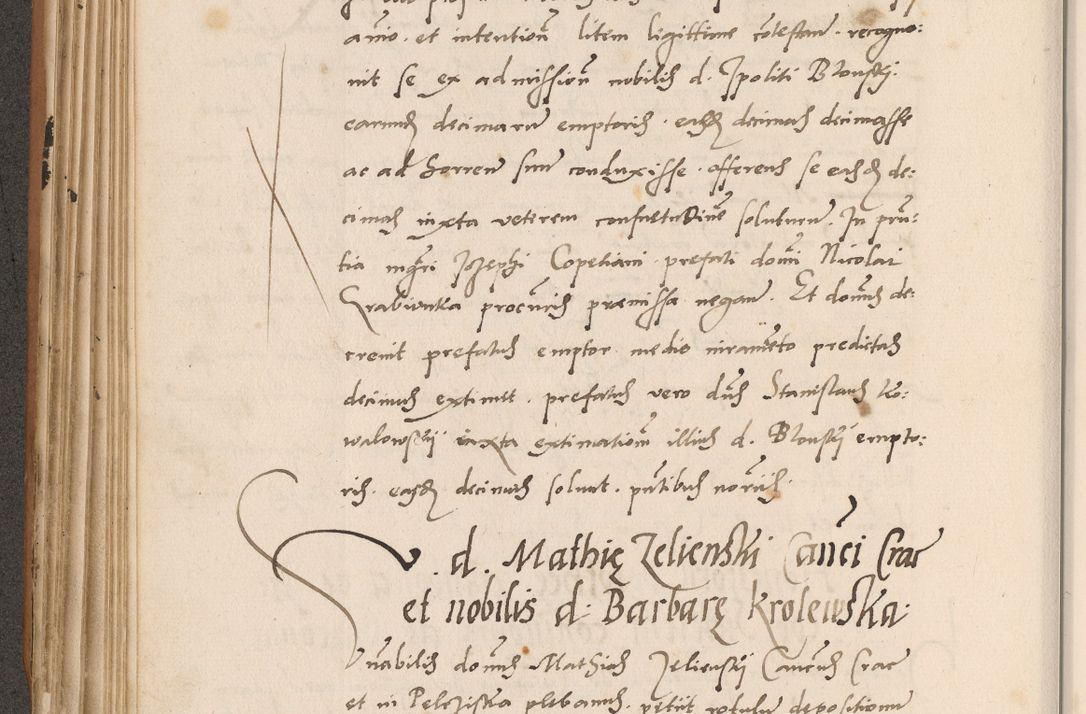 anīo. et intentionē litem ligittime cōtestanđ. recogno:
uit se ex admissionē nobilis d. Ipoliti Blonskj.
earunđ decimarū emptoris. easđ decimas decimasse
ac ad horreū suū conduxisse. offerens se easđ de:
cimas iuxta veterem consuetudinē soluturū. In prñ:
tia mgri Jozephi Copetiani prefati domī Nicolai
Grabiunka procūris premissa neganđ. Et domūs de:
creuit prefatus emptor medio iuramēto predictas
decimas extimet. prefatus vero dūs Stanislaus Ko:
walowskÿ iuxta extimationē illius d. Blonskÿ empto:
ris. easđ decimas soluat. pūtibus nōriis.
V. d. Mathię Zelienski Canci Crac
et nobilis d: Barbarę Krolewska.
Vnabilis domūs Mathias Zelienskÿ Cancūs Crac
et in Pelcziska plebanus. petiit rotulū depositionū